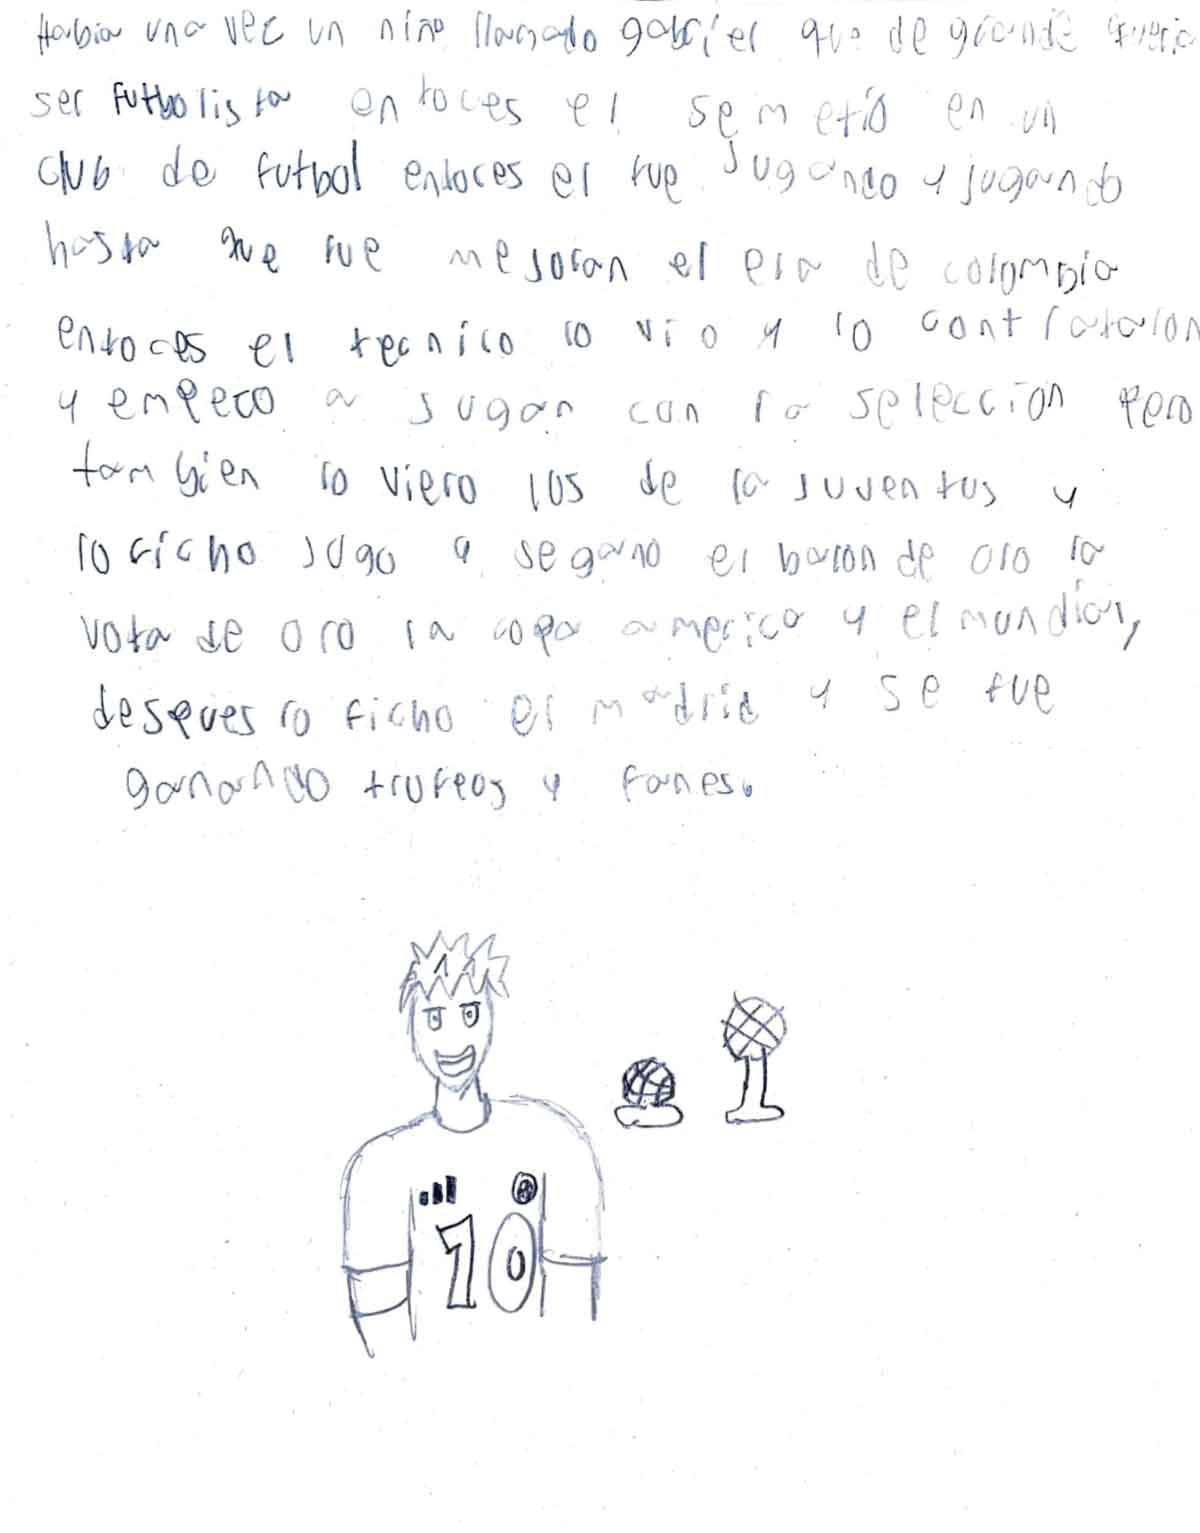 Habia una vez un niño llamado gabriel que de grande queria
ser futbolista entoces el semetió en un
club de futbol entoces el fue jugando y jugando
hasta que fue mejoran el era de colombia
entoces el tecnico lo vio y lo contrataron
y empeco a jugar con la seleccion pero
tambien lo viero los de la juventus y
lo ficho jugo y segano el balon de oro la
vota de oro la copa america y el mundial,
despues lo ficho el madrid y se fue
ganando trofeos y fanes.
10